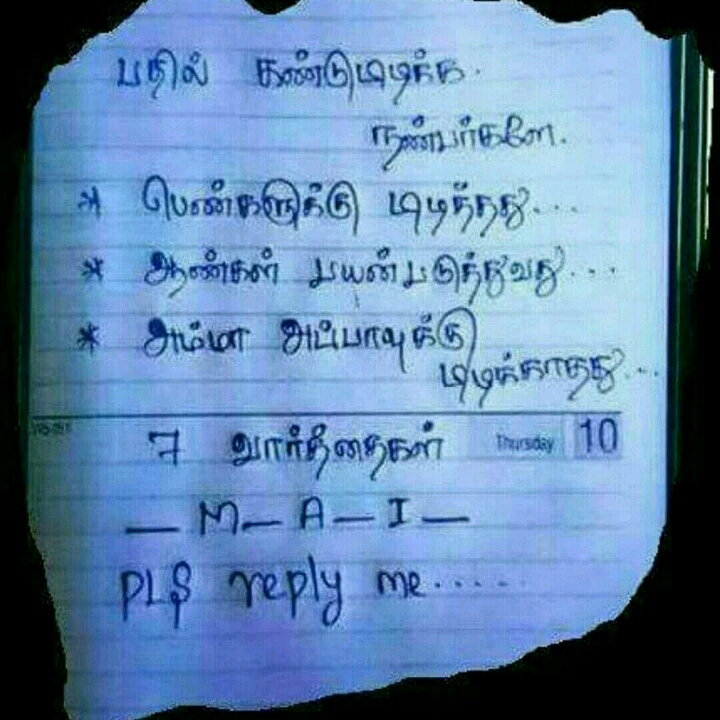 பதில் கண்டுபிடிக்க.
நண்பர்களே.
* பெண்களுக்கு பிடித்தது...
* ஆண்கள் பயன்படுத்துவது...
* அம்மா அப்பாவுக்கு
பிடிக்காதது...
7 வார்த்தைகள் Thursday 10
_ M _ A _ I _
PLS reply me......